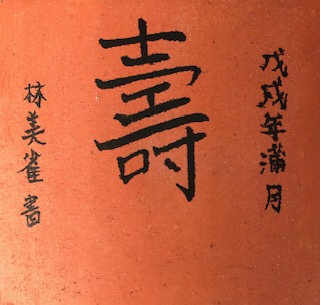 戊戌年滿月
壽
林美雀書